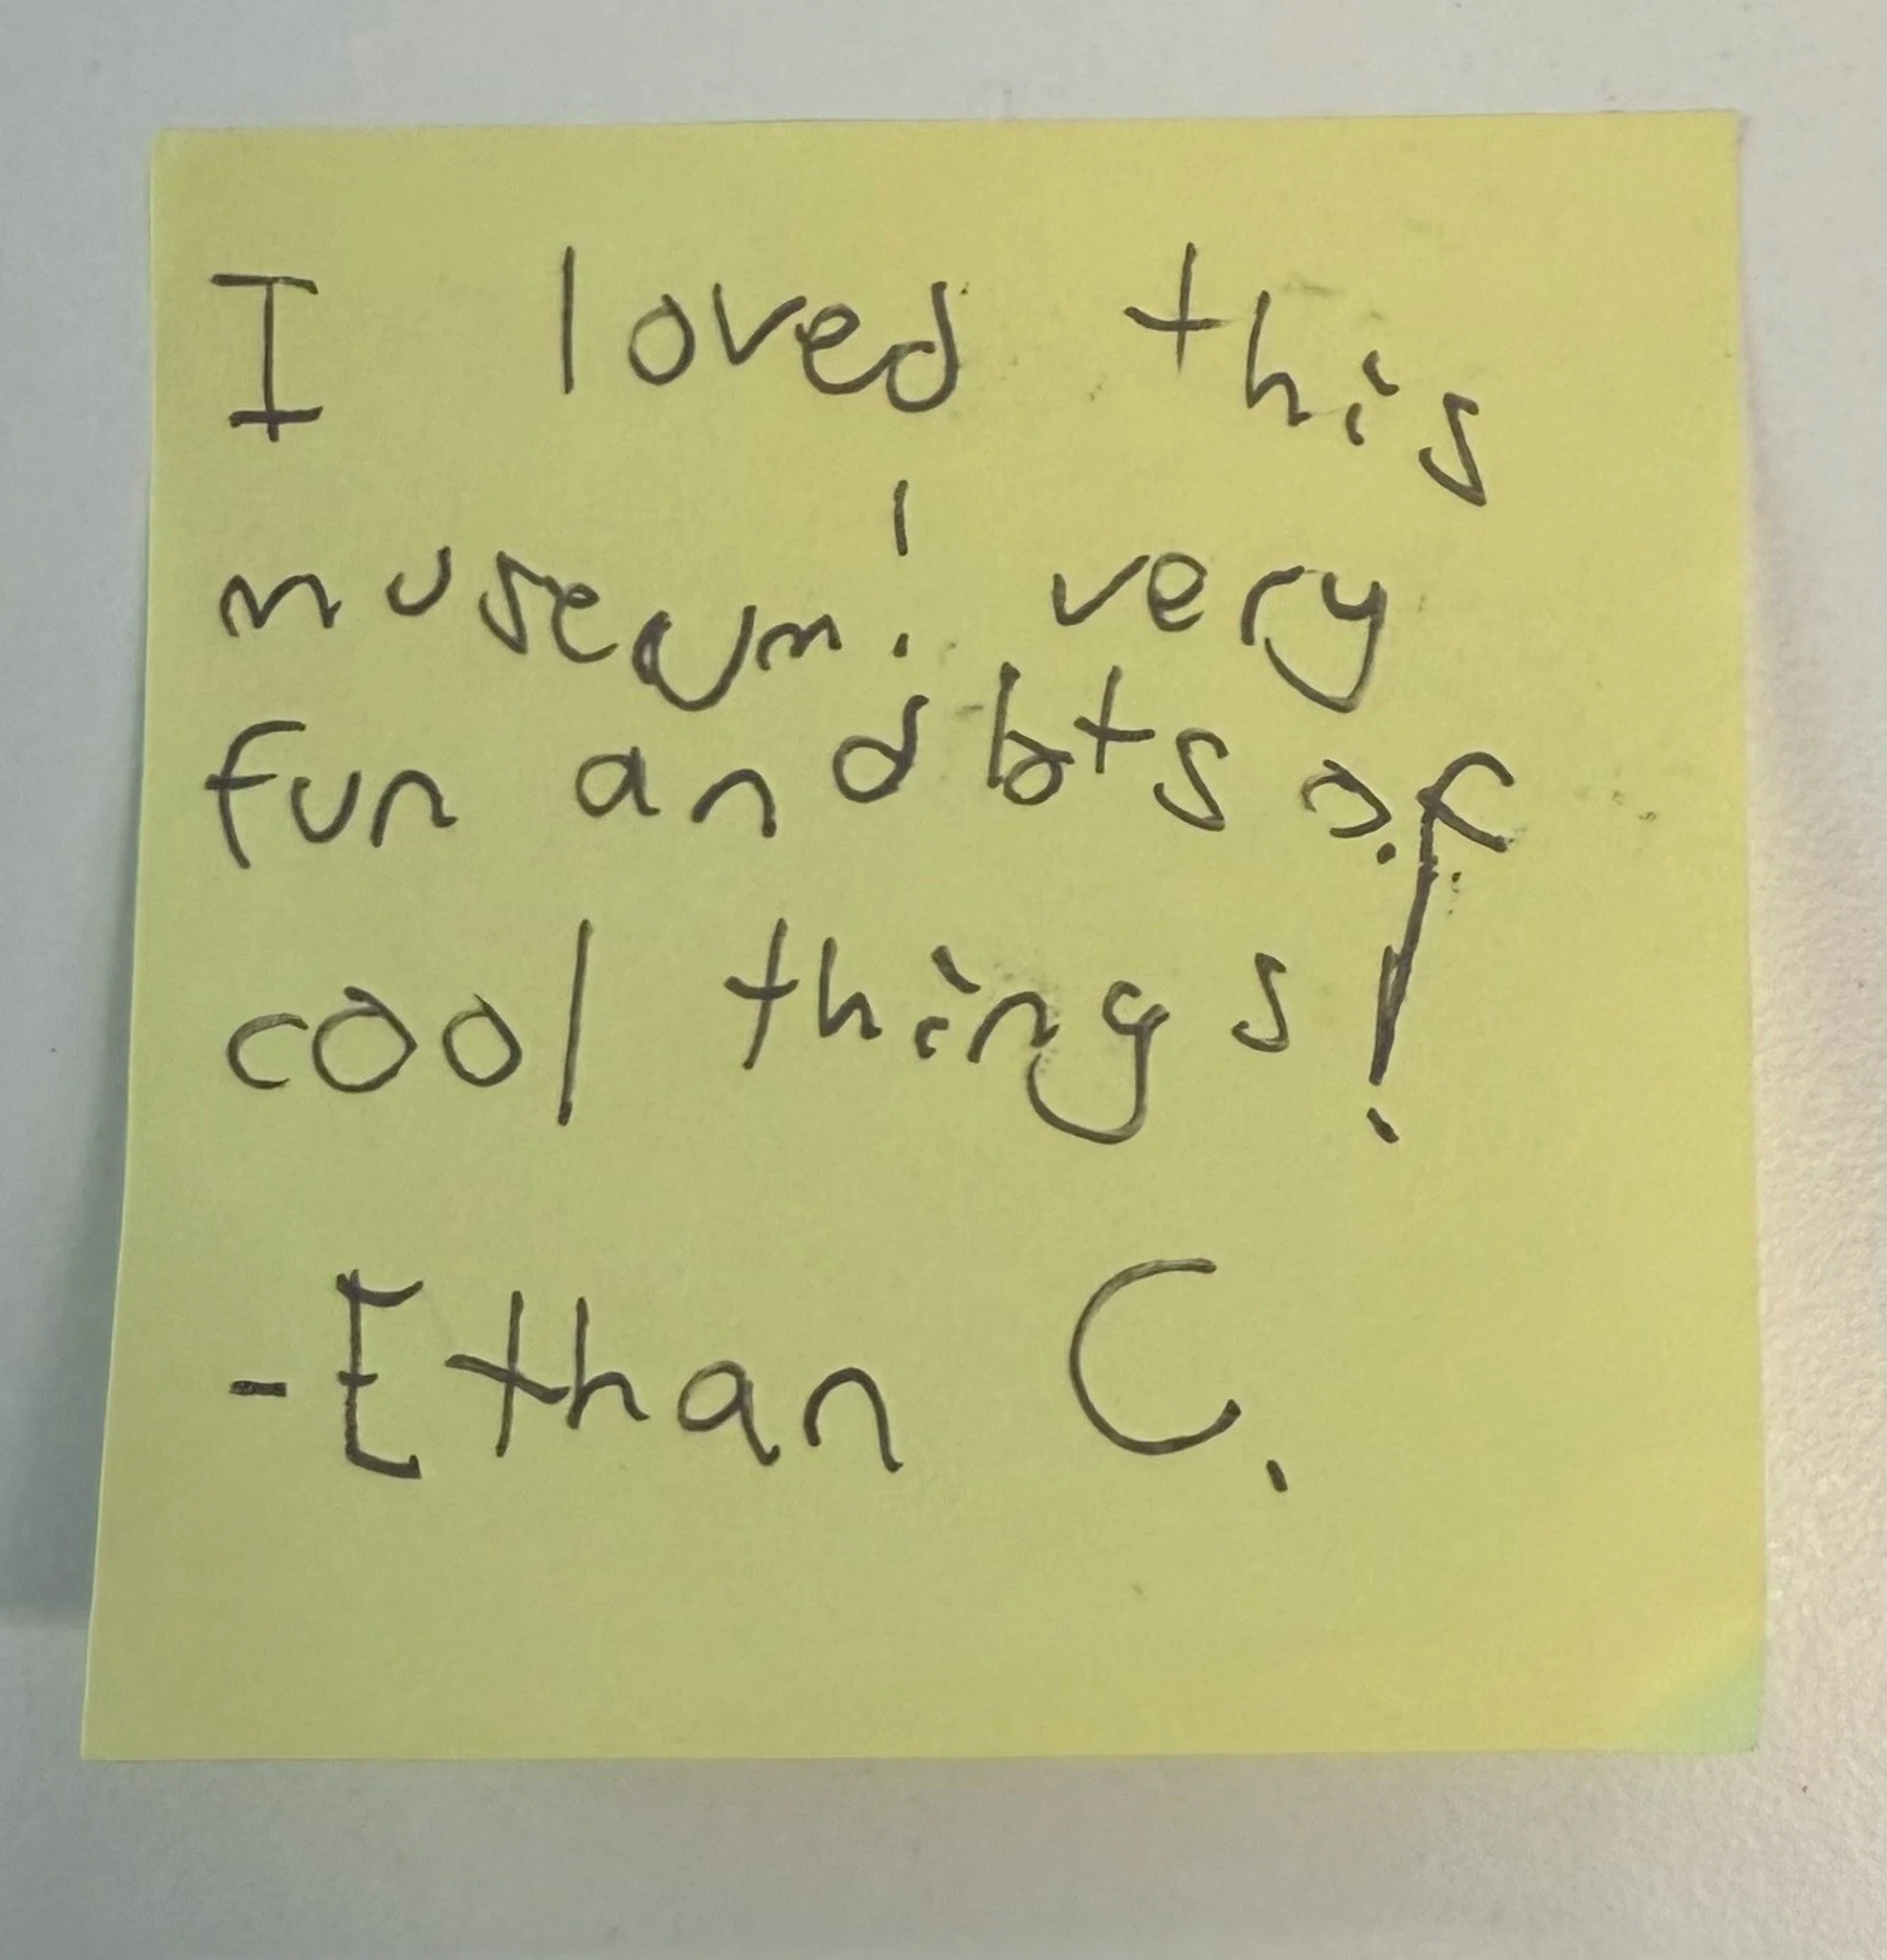 I loved this
museum! very
fun and lots of
cool things!
-Ethan C.